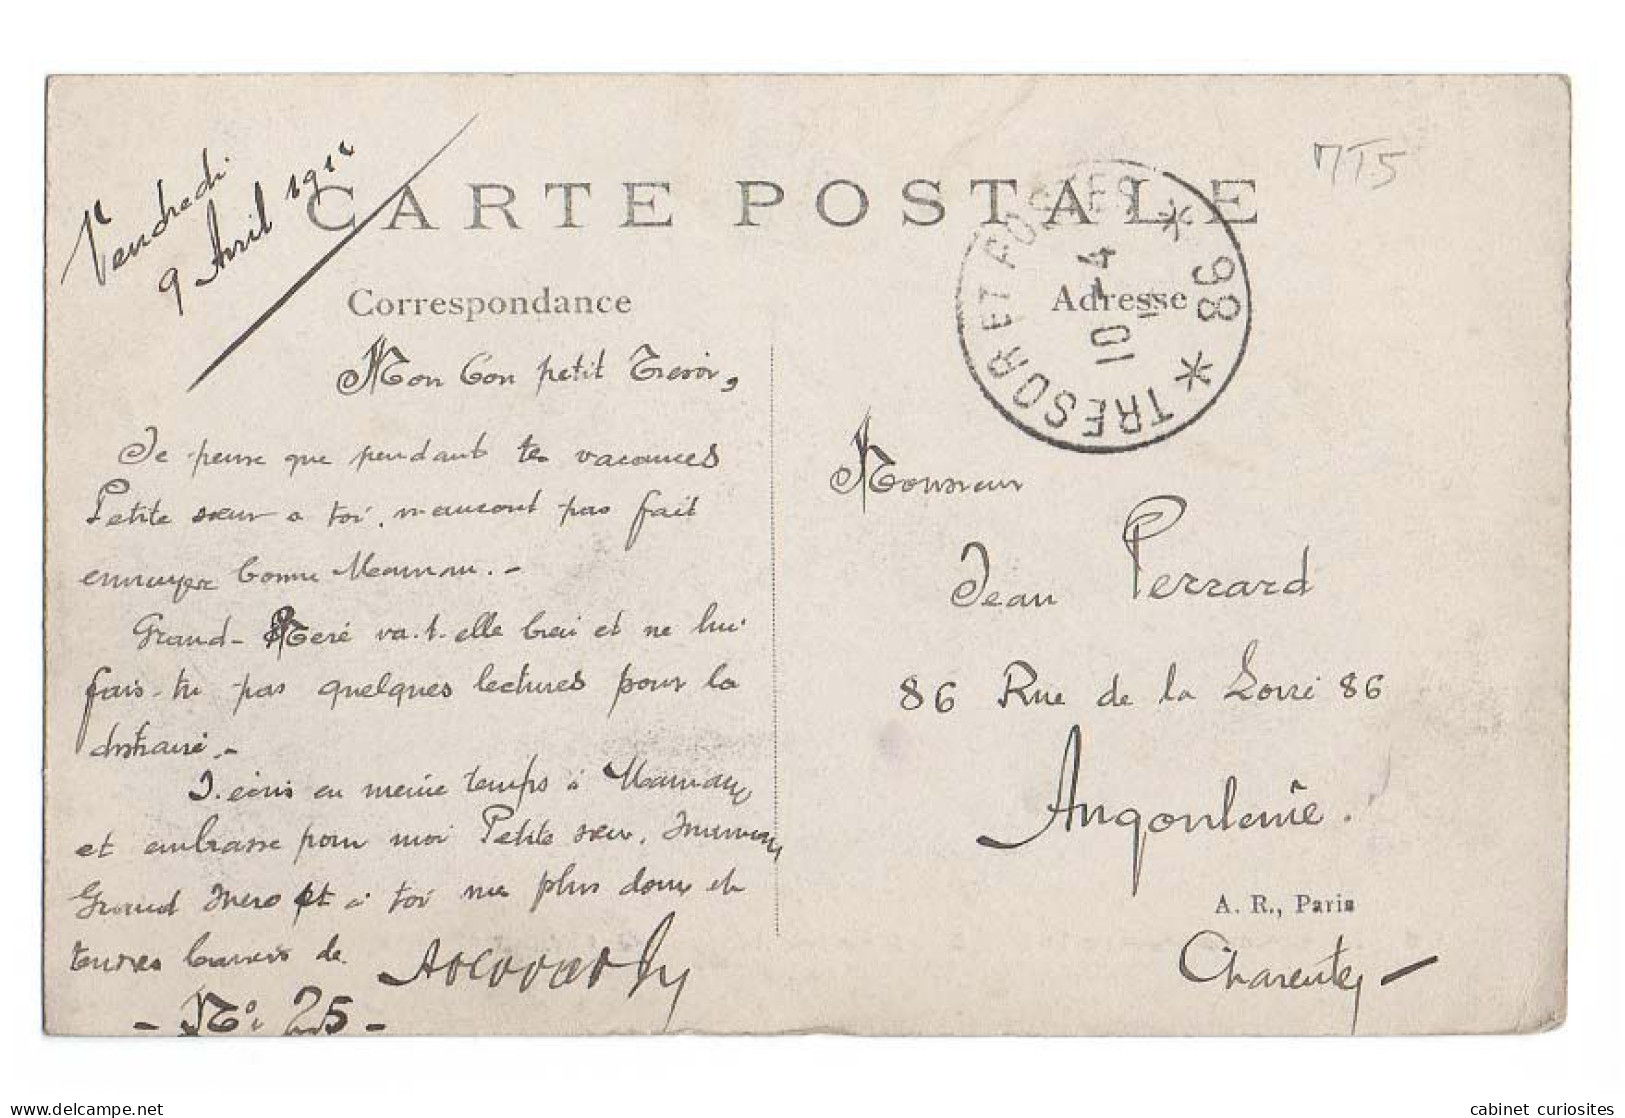 Vendredi
9 Avril 191
CARTE POSTALE
7T5
TRESOR ET POSTES * 98 *
10 - 4
Correspondance
Adresse
Mon bon petit Tresor,
Je pense que pendant tes vacances
Petite sœur a toi, n'auront pas fait
ennuyer bonne Maman. -
Grand-Meré va-t-elle bien et ne lui
fais-tu pas quelques lectures pour la
distraire. -
J'écris en meme temps à Maman
et embrasse pour moi Petite sœur,
Grand Mere et à toi mes plus doux et
tendres baisers de
- No. 25 -
Monsieur
Jean Perrard
86 Rue de la 86
Angoulême.
A. R., Paris
Charente -
cabinet_curiosites
www.delcampe.net